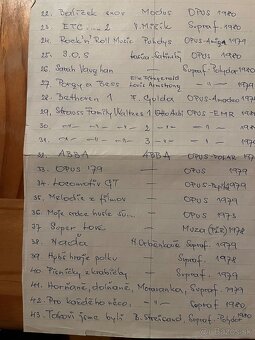 22. Balíček snov Modus OPUS 1980
23. ETC...2 V. Mišík Supraf. 1980
24. Rock'n'Roll Music Puhdys OPUS-Amiga 1979
25. S.O.S. OPUS 1979
26. Sarah Vaughan Supraf. Polydor 1980
27. Porgy a Bess Ella Fitzgerald Louis Armstrong -"- 1979
28. Bethoven 1 F. Gulda OPUS-Amadeo 1979
29. Strauss Family Waltzes 1 OPUS-EMR 1979
30. -"- -"- -"- 2 -"- -"- 1979
31. -"- -"- -"- 3 -"- -"- 1979
32. ABBA ABBA OPUS-POLAR 1979
33. OPUS '79 — OPUS 1979
34. Locomotiv GT — 1979
35. Melodie z filmov — OPUS 1979
36. Moje srdce husle sú... — OPUS 1975
37. Super — MUZA 1978
38. Naďa N. Urbánková Supraf. 1979
39. Hubí hraje polku — Supraf. 1979
40. Písničky z krabičky — Supraf. 1979
41. Horňané, dolňané, Moravanka, Supraf. 1979
42. Pro každého něco. — Supraf. 1980
43. Takoví jsme byli B. Streisand, Supraf. Polydor 1980